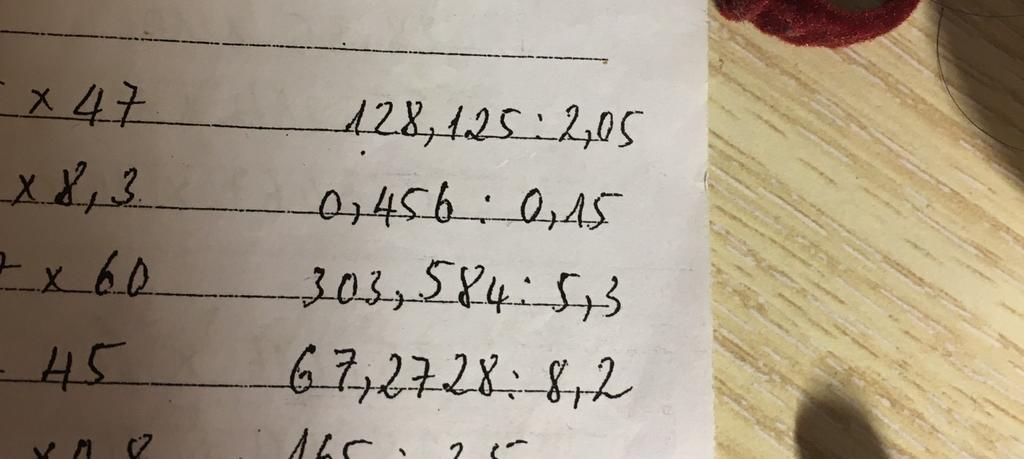 x 47 128,125 : 2,05
x 8,3 0,456 : 0,15
x 60 303,584 : 5,3
45 67,2728 : 8,2